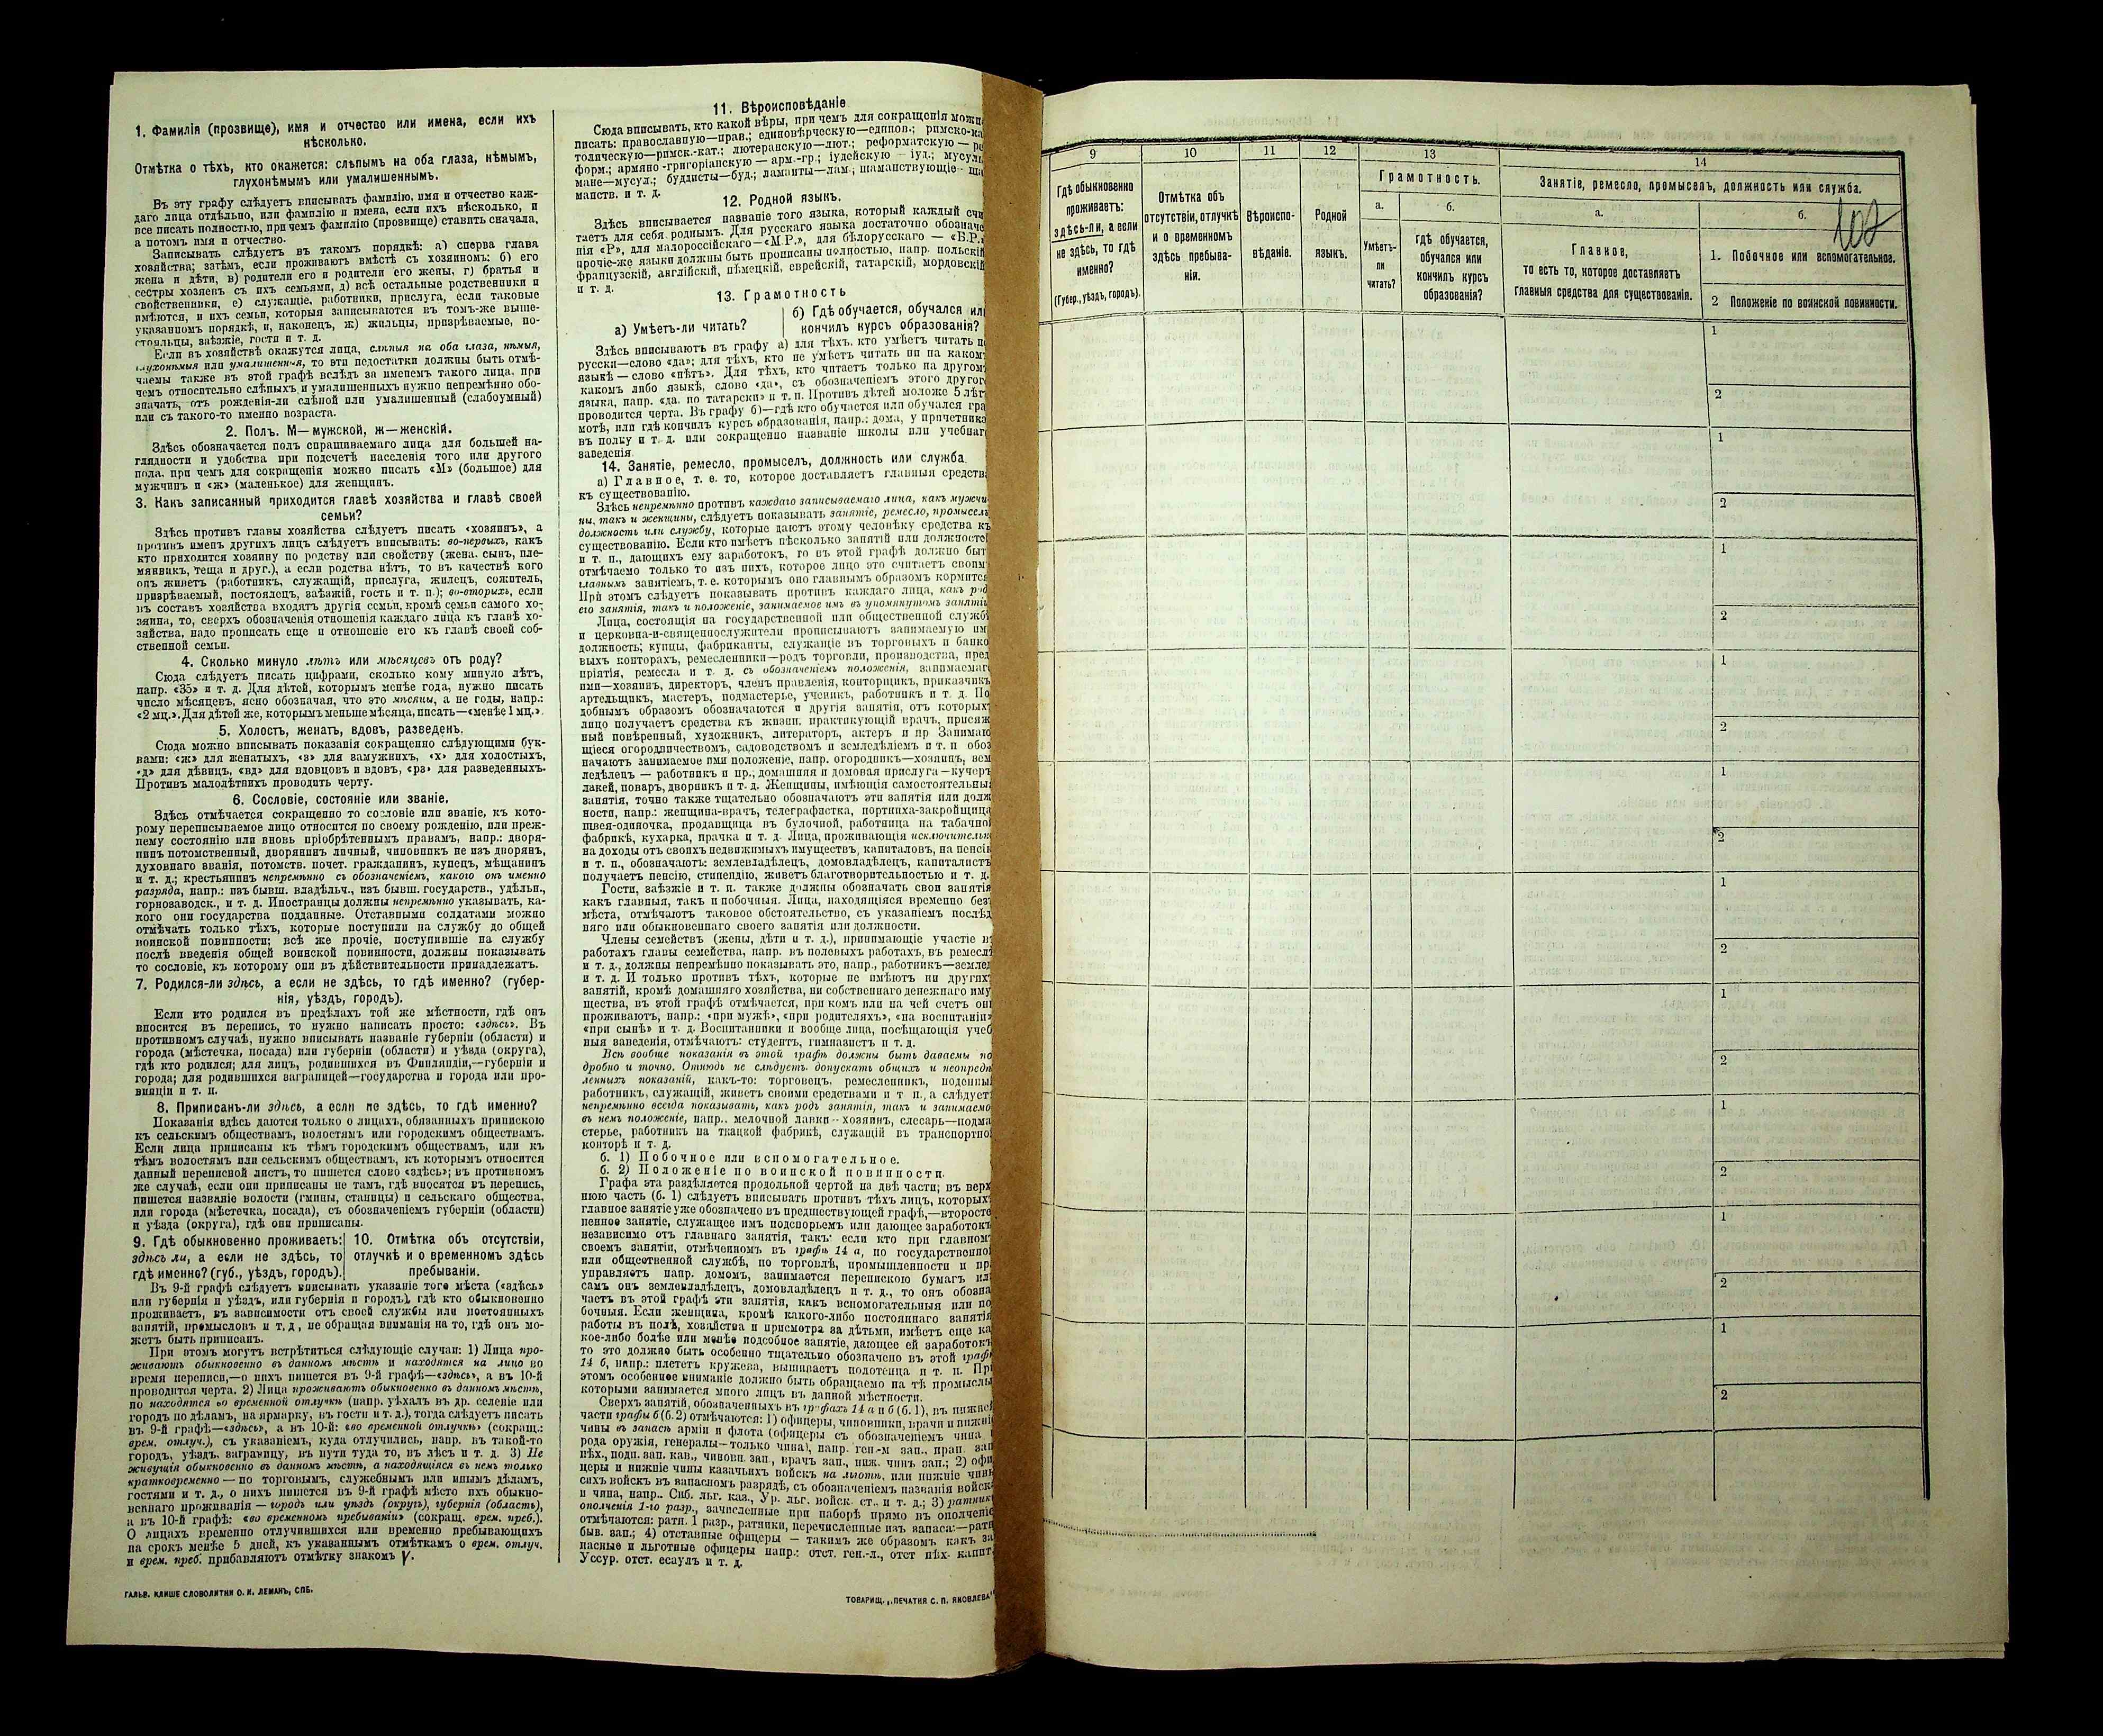 1. Фамилія (прозвище), имя и отчество или имена, если ихъ
нѣсколько.
Отмѣтка о тѣхъ, кто окажется: слѣпымъ на оба глаза, нѣмымъ,
глухонѣмымъ или умалишеннымъ.
Въ эту графу слѣдуетъ вписывать фамилію, имя и отчество каж-
даго лица отдѣльно, или фамилію и имена, если ихъ нѣсколько, и
все писать полностью, при чемъ фамилію (прозвище) ставить сначала,
а потомъ имя и отчество.
Записывать слѣдуетъ въ такомъ порядкѣ: а) сперва глава
хозяйства; затѣмъ, если проживаютъ вмѣстѣ съ хозяиномъ: б) его
жена и дѣти, в) родители его и родители его жены, г) братья и
сестры хозяевъ съ ихъ семьями, д) всѣ остальные родственники и
свойственники, е) служащіе, работники, прислуга, если таковые
имѣются, и ихъ семьи, которыя записываются въ томъ-же выше-
указанномъ порядкѣ, и, наконецъ, ж) жильцы, призрѣваемые, по-
стояльцы, заѣзжіе, гости и т. д.
Если въ хозяйствѣ окажутся лица, слѣпыя на оба глаза, нѣмыя,
глухонѣмыя или умалишенныя, то эти недостатки должны быть отмѣ-
чаемы также въ этой графѣ вслѣдъ за именемъ такого лица, при
чемъ относительно слѣпыхъ и умалишенныхъ нужно непремѣнно обо-
значать, отъ рожденія-ли слѣпой или умалишенный (слабоумный)
или съ такого-то именно возраста.
2. Полъ. М—мужской, ж—женскій.
Здѣсь обозначается полъ спрашиваемаго лица для большей на-
глядности и удобства при подсчетѣ населенія того или другого
пола, при чемъ для сокращенія можно писать «М» (большое) для
мужчинъ и «ж» (маленькое) для женщинъ.
3. Какъ записанный приходится главѣ хозяйства и главѣ своей
семьи?
Здѣсь противъ главы хозяйства слѣдуетъ писать «хозяинъ», а
противъ именъ другихъ лицъ слѣдуетъ вписывать: во-первыхъ, какъ
кто приходится хозяину по родству или свойству (жена, сынъ, пле-
мянникъ, теща и друг.), а если родства нѣтъ, то въ качествѣ кого
онъ живетъ (работникъ, служащій, прислуга, жилецъ, сожитель,
призрѣваемый, постоялецъ, заѣзжій, гость и т. п.); во-вторыхъ, если
въ составъ хозяйства входятъ другія семьи, кромѣ семьи самого хо-
зяина, то, сверхъ обозначенія отношенія каждаго лица къ главѣ хо-
зяйства, надо прописать еще и отношеніе его къ главѣ своей соб-
ственной семьи.
4. Сколько минуло лѣтъ или мѣсяцевъ отъ роду?
Сюда слѣдуетъ писать цифрами, сколько кому минуло лѣтъ,
напр. «35» и т. д. Для дѣтей, которымъ менѣе года, нужно писать
число мѣсяцевъ, ясно обозначая, что это мѣсяцы, а не годы, напр.:
«2 мц.». Для дѣтей же, которымъ меньше мѣсяца, писать—«менѣе 1 мц.».
5. Холостъ, женатъ, вдовъ, разведенъ.
Сюда можно вписывать показанія сокращенно слѣдующими бук-
вами: «ж» для женатыхъ, «з» для замужнихъ, «х» для холостыхъ,
«д» для дѣвицъ, «вд» для вдовцовъ и вдовъ, «рз» для разведенныхъ.
Противъ малолѣтнихъ проводить черту.
6. Сословіе, состояніе или званіе.
Здѣсь отмѣчается сокращенно то сословіе или званіе, къ кото-
рому переписываемое лицо относится по своему рожденію, или преж-
нему состоянію или вновь пріобрѣтеннымъ правамъ, напр.: дворя-
нинъ потомственный, дворянинъ личный, чиновникъ не изъ дворянъ,
духовнаго званія, потомств. почет. гражданинъ, купецъ, мѣщанинъ
и т. д.; крестьянинъ непремѣнно съ обозначеніемъ, какого онъ именно
разряда, напр.: изъ бывш. владѣльч., изъ бывш. государств., удѣльн.,
горнозаводск., и т. д. Иностранцы должны непремѣнно указывать, ка-
кого они государства подданные. Отставными солдатами можно
отмѣчать только тѣхъ, которые поступили на службу до общей
воинской повинности; всѣ же прочіе, поступившіе на службу
послѣ введенія общей воинской повинности, должны показывать
то сословіе, къ которому они въ дѣйствительности принадлежатъ.
7. Родился-ли здѣсь, а если не здѣсь, то гдѣ именно? (губер-
нія, уѣздъ, городъ).
Если кто родился въ предѣлахъ той же мѣстности, гдѣ онъ
вносится въ перепись, то нужно написать просто: «здѣсь». Въ
противномъ случаѣ, нужно вписывать названіе губерніи (области) и
города (мѣстечка, посада) или губерніи (области) и уѣзда (округа),
гдѣ кто родился; для лицъ, родившихся въ Финляндіи,—губерніи и
города; для родившихся заграницей—государства и города или про-
винціи и т. п.
8. Приписанъ-ли здѣсь, а если не здѣсь, то гдѣ именно?
Показанія здѣсь даются только о лицахъ, обязанныхъ припискою
къ сельскимъ обществамъ, волостямъ или городскимъ обществамъ.
Если лица приписаны къ тѣмъ городскимъ обществамъ, или къ
тѣмъ волостямъ или сельскимъ обществамъ, къ которымъ относится
данный переписной листъ, то пишется слово «здѣсь»; въ противномъ
же случаѣ, если они приписаны не тамъ, гдѣ вносятся въ перепись,
пишется названіе волости (гмины, станицы) и сельскаго общества,
или города (мѣстечка, посада), съ обозначеніемъ губерніи (области)
и уѣзда (округа), гдѣ они приписаны.
9. Гдѣ обыкновенно проживаетъ:
здѣсь ли, а если не здѣсь, то
гдѣ именно? (губ., уѣздъ, городъ).
10. Отмѣтка объ отсутствіи,
отлучкѣ и о временномъ здѣсь
пребываніи.
Въ 9-й графѣ слѣдуетъ вписывать указаніе того мѣста («здѣсь»
или губернія и уѣздъ, или губернія и городъ), гдѣ кто обыкновенно
проживаетъ, въ зависимости отъ своей службы или постоянныхъ
занятій, промысловъ и т. д., не обращая вниманія на то, гдѣ онъ мо-
жетъ быть приписанъ.
При этомъ могутъ встрѣтиться слѣдующіе случаи: 1) Лица про-
живаютъ обыкновенно въ данномъ мѣстѣ и находятся на лицо во
время переписи,—о нихъ пишется въ 9-й графѣ—«здѣсь», а въ 10-й
проводится черта. 2) Лица проживаютъ обыкновенно въ данномъ мѣстѣ,
но находятся во временной отлучкѣ (напр. уѣхалъ въ др. селеніе или
городъ по дѣламъ, на ярмарку, въ гости и т. д.), тогда слѣдуетъ писать
въ 9-й графѣ—«здѣсь», а въ 10-й: «во временной отлучкѣ» (сокращ.:
врем. отлуч.), съ указаніемъ, куда отлучились, напр. въ такой-то
городъ, уѣздъ, заграницу, въ пути туда то, въ лѣсъ и т. д. 3) Не
живущія обыкновенно въ данномъ мѣстѣ, а находящіяся въ немъ только
кратковременно — по торговымъ, служебнымъ или инымъ дѣламъ,
гостями и т. д., о нихъ пишется въ 9-й графѣ мѣсто ихъ обыкно-
веннаго проживанія — городъ или уѣздъ (округъ), губернія (область),
а въ 10-й графѣ: «во временномъ пребываніи» (сокращ. врем. преб.).
О лицахъ временно отлучившихся или временно пребывающихъ
на срокъ менѣе 5 дней, къ указаннымъ отмѣткамъ о врем. отлуч.
и врем. преб. прибавляютъ отмѣтку знакомъ V.
ГАЛЬВ. КЛИШЕ СЛОВОЛИТНИ О. И. ЛЕМАНЪ, СПБ.
11. Вѣроисповѣданіе
Сюда вписывать, кто какой вѣры, при чемъ для сокращенія можно
писать: православную—прав.; единовѣрческую—единов.; римско-ка
толическую—римск.-кат.; лютеранскую—лют.; реформатскую — ре
форм.; армяно-григоріанскую — арм.-гр.; іудейскую — іуд.; мусуль
мане—мусул.; буддисты—буд.; ламаиты—лам.; шаманствующіе—ша
манств. и т. д.
12. Родной языкъ.
Здѣсь вписывается названіе того языка, который каждый счи
таетъ для себя роднымъ. Для русскаго языка достаточно обозначе
нія «Р», для малороссійскаго—«М.Р.», для бѣлорусскаго — «Б.Р.»
прочіе-же языки должны быть прописаны полностью, напр. польскій
французскій, англійскій, нѣмецкій, еврейскій, татарскій, мордовскій
и т. д.
13. Грамотность
а) Умѣетъ-ли читать?
б) Гдѣ обучается, обучался или
кончилъ курсъ образованія?
Здѣсь вписываютъ въ графу а) для тѣхъ, кто умѣетъ читать по
русски—слово «да»; для тѣхъ, кто не умѣетъ читать ни на какомъ
языкѣ — слово «нѣтъ». Для тѣхъ, кто читаетъ только на другомъ
какомъ либо языкѣ, слово «да», съ обозначеніемъ этого другого
языка, напр. «да. по татарски» и т. п. Противъ дѣтей моложе 5 лѣтъ
проводится черта. Въ графу б)—гдѣ кто обучается или обучался гра
мотѣ, или гдѣ кончилъ курсъ образованія, напр.: дома, у причетника
въ полку и т. д. или сокращенно названіе школы или учебнаго
заведенія.
14. Занятіе, ремесло, промыселъ, должность или служба
а) Главное, т. е. то, которое доставляетъ главныя средства
къ существованію.
Здѣсь непремѣнно противъ каждаго записываемаго лица, какъ мужчи
ны, такъ и женщины, слѣдуетъ показывать занятіе, ремесло, промыселъ
должность или службу, которые даютъ этому человѣку средства къ
существованію. Если кто имѣетъ нѣсколько занятій или должностей
и т. п., дающихъ ему заработокъ, то въ этой графѣ должно быть
отмѣчаемо только то изъ нихъ, которое лицо это считаетъ своимъ
главнымъ занятіемъ, т. е. которымъ оно главнымъ образомъ кормится
При этомъ слѣдуетъ показывать противъ каждаго лица, какъ родъ
его занятія, такъ и положеніе, занимаемое имъ въ упомянутомъ занятіи
Лица, состоящія на государственной или общественной службѣ
и церковна-и-священнослужители прописываютъ занимаемую ими
должность; купцы, фабриканты, служащіе въ торговыхъ и банко
выхъ конторахъ, ремесленники—родъ торговли, производства, пред
пріятія, ремесла и т. д. съ обозначеніемъ положенія, занимаемаго
ими—хозяинъ, директоръ, членъ правленія, конторщикъ, приказчикъ
артельщикъ, мастеръ, подмастерье, ученикъ, работникъ и т. д. По
добнымъ образомъ обозначаются и другія занятія, отъ которыхъ
лицо получаетъ средства къ жизни: практикующій врачъ, присяж
ный повѣренный, художникъ, литераторъ, актеръ и пр Занимаю
щіеся огородничествомъ, садоводствомъ и земледѣліемъ и т. п обоз
начаютъ занимаемое ими положеніе, напр. огородникъ—хозяинъ, зем
ледѣлецъ — работникъ и пр., домашняя и домовая прислуга—кучеръ
лакей, поваръ, дворникъ и т. д. Женщины, имѣющія самостоятельныя
занятія, точно также тщательно обозначаютъ эти занятія или долж
ности, напр.: женщина-врачъ, телеграфистка, портниха-закройщица
швея-одиночка, продавщица въ булочной, работница на табачной
фабрикѣ, кухарка, прачка и т. д. Лица, проживающія исключительно
на доходы отъ своихъ недвижимыхъ имуществъ, капиталовъ, на пенсіи
и т. п., обозначаютъ: землевладѣлецъ, домовладѣлецъ, капиталистъ
получаетъ пенсію, стипендію, живетъ благотворительностью и т. д.
Гости, заѣзжіе и т. п. также должны обозначать свои занятія
какъ главныя, такъ и побочныя. Лица, находящіяся временно безъ
мѣста, отмѣчаютъ таковое обстоятельство, съ указаніемъ послѣд
няго или обыкновеннаго своего занятія или должности.
Члены семействъ (жены, дѣти и т. д.), принимающіе участіе въ
работахъ главы семейства, напр. въ полевыхъ работахъ, въ ремеслѣ
и т. д., должны непремѣнно показывать это, напр., работникъ—землед
и т. д. И только противъ тѣхъ, которые не имѣютъ ни другихъ
занятій, кромѣ домашняго хозяйства, ни собственнаго денежнаго иму
щества, въ этой графѣ отмѣчается, при комъ или на чей счетъ они
проживаютъ, напр.: «при мужѣ», «при родителяхъ», «на воспитаніи»
«при сынѣ» и т. д. Воспитанники и вообще лица, посѣщающія учеб
ныя заведенія, отмѣчаютъ: студентъ, гимназистъ и т. д.
Всѣ вообще показанія въ этой графѣ должны быть даваемы по
дробно и точно. Отнюдь не слѣдуетъ допускать общихъ и неопредѣ
ленныхъ показаній, какъ-то: торговецъ, ремесленникъ, поденный
работникъ, служащій, живетъ своими средствами и т п., а слѣдуетъ
непремѣнно всегда показывать, какъ родъ занятія, такъ и занимаемо
въ немъ положеніе, напр.. мелочной лавки—хозяинъ, слесарь—подма
стерье, работникъ на ткацкой фабрикѣ, служащій въ транспортной
конторѣ и т. д.
б. 1) Побочное или вспомогательное.
б. 2) Положеніе по воинской повинности.
Графа эта раздѣляется продольной чертой на двѣ части; въ верх
нюю часть (б. 1) слѣдуетъ вписывать противъ тѣхъ лицъ, которыхъ
главное занятіе уже обозначено въ предшествующей графѣ,—второсте
пенное занятіе, служащее имъ подспорьемъ или дающее заработокъ
независимо отъ главнаго занятія, такъ: если кто при главномъ
своемъ занятіи, отмѣченномъ въ графѣ 14 а, по государственной
или общественной службѣ, по торговлѣ, промышленности и пр
управляетъ напр. домомъ, занимается перепискою бумагъ или
самъ онъ землевладѣлецъ, домовладѣлецъ и т. д., то онъ обозна
чаетъ въ этой графѣ эти занятія, какъ вспомогательныя или по
бочныя. Если женщина, кромѣ какого-либо постояннаго занятія
работы въ полѣ, хозяйства и присмотра за дѣтьми, имѣетъ еще ка
кое-либо болѣе или менѣе подсобное занятіе, дающее ей заработокъ
то это должно быть особенно тщательно обозначено въ этой графѣ
14 б, напр.: плететъ кружева, вышиваетъ полотенца и т. п. При
этомъ особенное вниманіе должно быть обращаемо на тѣ промыслы
которыми занимается много лицъ въ данной мѣстности.
Сверхъ занятій, обозначенныхъ въ графахъ 14 а и б (б. 1), въ нижней
части графы б (б. 2) отмѣчаются: 1) офицеры, чиновники, врачи и нижніе
чины въ запасѣ арміи и флота (офицеры съ обозначеніемъ чина и
рода оружія, генералы—только чина), напр. ген.-м зап., прап. зап
пѣх., подп. зап. кав., чиновн. зап., врачъ зап., ниж. чинъ зап.; 2) офи
церы и нижніе чины казачьихъ войскъ на льготѣ, или нижніе чины
сихъ войскъ въ запасномъ разрядѣ, съ обозначеніемъ названія войска
и чина, напр.. Сиб. льг. каз., Ур. льг. войск. ст.. и т. д.; 3) ратники
ополченія 1-го разр., зачисленные при наборѣ прямо въ ополченіе
отмѣчаются: ратн. 1 разр., ратники, перечисленные изъ запаса:—ратн
быв. зап.; 4) отставные офицеры — такимъ же образомъ какъ за
пасные и льготные офицеры напр.: отст. ген.-л., отст пѣх. капит.
Уссур. отст. есаулъ и т. д.
ТОВАРИЩ. „ПЕЧАТНЯ С. П. ЯКОВЛЕВА“
9
10
11
12
13
14
Гдѣ обыкновенно
проживаетъ:
здѣсь-ли, а если
не здѣсь, то гдѣ
именно?
(Губер., уѣздъ, городъ).
Отмѣтка объ
отсутствіи, отлучкѣ
и о временномъ
здѣсь пребыва-
ніи.
Вѣроиспо-
вѣданіе.
Родной
языкъ.
Грамотность.
а.
Умѣетъ-
ли
читать?
б.
гдѣ обучается,
обучался или
кончилъ курсъ
образованія?
Занятіе, ремесло, промыселъ, должность или служба.
а.
Главное,
то есть то, которое доставляетъ
главныя средства для существованія.
б.
107
1. Побочное или вспомогательное.
2 Положеніе по воинской повинности.
1
2
1
2
1
2
1
2
1
2
1
2
1
2
1
2
1
2
1
2